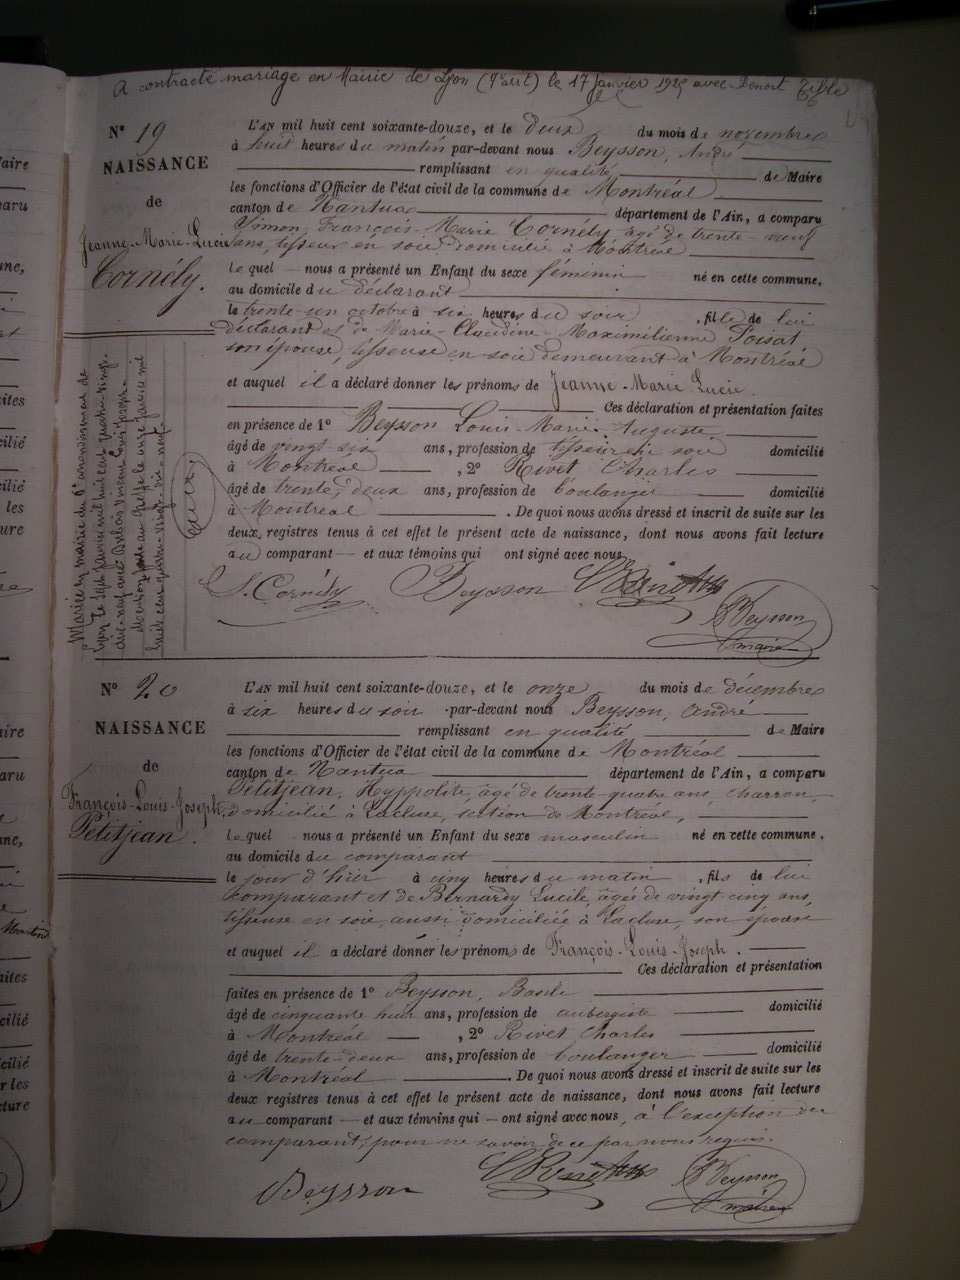 A contracté mariage en Mairie de Lyon (7e arrt) le 17 Janvier 1925 avec Benoit
N° 19
NAISSANCE
de
Jeanne-Marie-Lucie
Cornély.
L'AN mil huit cent soixante-douze, et le deux du mois de novembre
à huit heures du matin par-devant nous Beysson, André
remplissant en qualité de Maire
les fonctions d'Officier de l'état civil de la commune de Montréal
canton de Nantua département de l'Ain, a comparu
Simon, François-Marie Cornély, âgé de trente-neuf
ans, tisseur en soie domicilié à Montréal
lequel nous a présenté un Enfant du sexe féminin né en cette commune,
au domicile du déclarant
le trente-un octobre à six heures du soir, fille de lui
déclarant et de Marie-Claudine-Maximilienne Poisat
son épouse, tisseuse en soie demeurant à Montréal
et auquel il a déclaré donner les prénoms de Jeanne-Marie Lucie
Ces déclaration et présentation faites
en présence de 1° Beysson Louis-Marie-Auguste
âgé de vingt-six ans, profession de tisseur en soie domicilié
à Montréal, 2° Rivet Charles
âgé de trente-deux ans, profession de boulanger domicilié
à Montréal. De quoi nous avons dressé et inscrit de suite sur les
deux registres tenus à cet effet le présent acte de naissance, dont nous avons fait lecture
au comparant et aux témoins qui ont signé avec nous
S. Cornély Beysson
Beysson
maire
Mariée en mairie du 6e arrondissement de
Lyon le sept janvier mil huit cent quatre vingt
dix-neuf avec Vincent Louis Joseph
Mention au Greffe le onze janvier mil
huit cent quatre vingt-dix-neuf
N° 20
NAISSANCE
de
François-Louis-Joseph
Petitjean.
L'AN mil huit cent soixante-douze, et le onze du mois de décembre
à six heures du soir par-devant nous Beysson, André
remplissant en qualité de Maire
les fonctions d'Officier de l'état civil de la commune de Montréal
canton de Nantua département de l'Ain, a comparu
Petitjean, Hyppolite, âgé de trente-quatre ans, charron
domicilié à Lacluse, section de Montréal,
lequel nous a présenté un Enfant du sexe masculin né en cette commune,
au domicile du comparant
le jour d'hier à cinq heures du matin, fils de lui
comparant et de Bernardy Lucile, âgée de vingt-cinq ans,
tisseuse en soie, aussi domiciliée à Lacluse, son épouse
et auquel il a déclaré donner les prénoms de François-Louis-Joseph.
Ces déclaration et présentation
faites en présence de 1° Beysson, Basile
âgé de cinquante huit ans, profession de aubergiste domicilié
à Montréal, 2° Rivet, Charles
âgé de trente-deux ans, profession de boulanger domicilié
à Montréal. De quoi nous avons dressé et inscrit de suite sur les
deux registres tenus à cet effet le présent acte de naissance, dont nous avons fait lecture
au comparant et aux témoins qui ont signé avec nous, à l'exception du
comparant, pour ne savoir de ce par nous requis.
Beysson
Beysson
maire